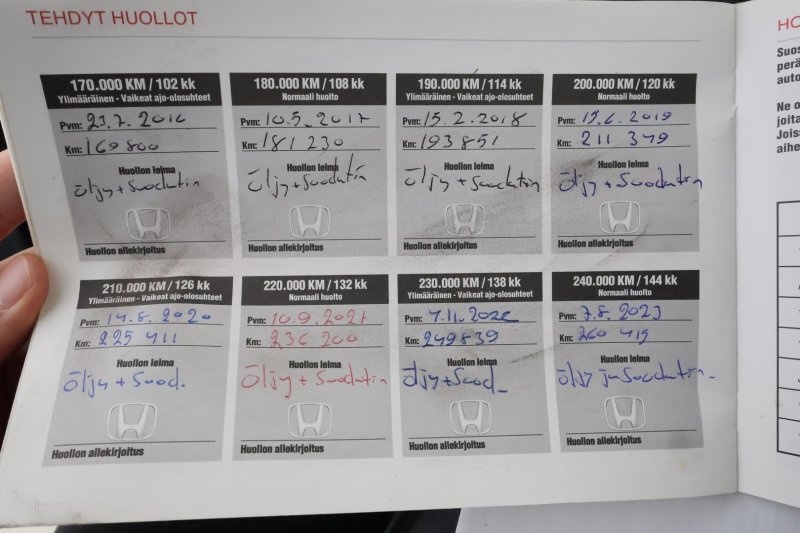 TEHDYT HUOLLOT
170.000 KM / 102 kk
Ylimääräinen - Vaikeat ajo-olosuhteet
Pvm: 23.7. 2016
Km: 169800
Huollon leima
Öljy + Suodatin
Huollon allekirjoitus
180.000 KM / 108 kk
Normaali huolto
Pvm: 10.5. 2017
Km: 181 230
Huollon leima
Öljy + Suodatin
Huollon allekirjoitus
190.000 KM / 114 kk
Ylimääräinen - Vaikeat ajo-olosuhteet
Pvm: 15. 2. 2018
Km: 193851
Huollon leima
Öljy + Suodatin
Huollon allekirjoitus
200.000 KM / 120 kk
Normaali huolto
Pvm: 19.6. 2019
Km: 211 349
Huollon leima
Öljy + Suodatin
Huollon allekirjoitus
210.000 KM / 126 kk
Ylimääräinen - Vaikeat ajo-olosuhteet
Pvm: 14.8. 2020
Km: 225 411
Huollon leima
Öljy + Suod.
Huollon allekirjoitus
220.000 KM / 132 kk
Normaali huolto
Pvm: 10.9. 2021
Km: 236 200
Huollon leima
Öljy + Suodatin
Huollon allekirjoitus
230.000 KM / 138 kk
Ylimääräinen - Vaikeat ajo-olosuhteet
Pvm: 4.11. 2022
Km: 249839
Huollon leima
Öljy + Suod
Huollon allekirjoitus
240.000 KM / 144 kk
Normaali huolto
Pvm: 7.8. 2023
Km: 260 419
Huollon leima
Öljy ja Suodatin
Huollon allekirjoitus
HO
Suos
perä
auto
Ne o
joita
Joiss
aihe